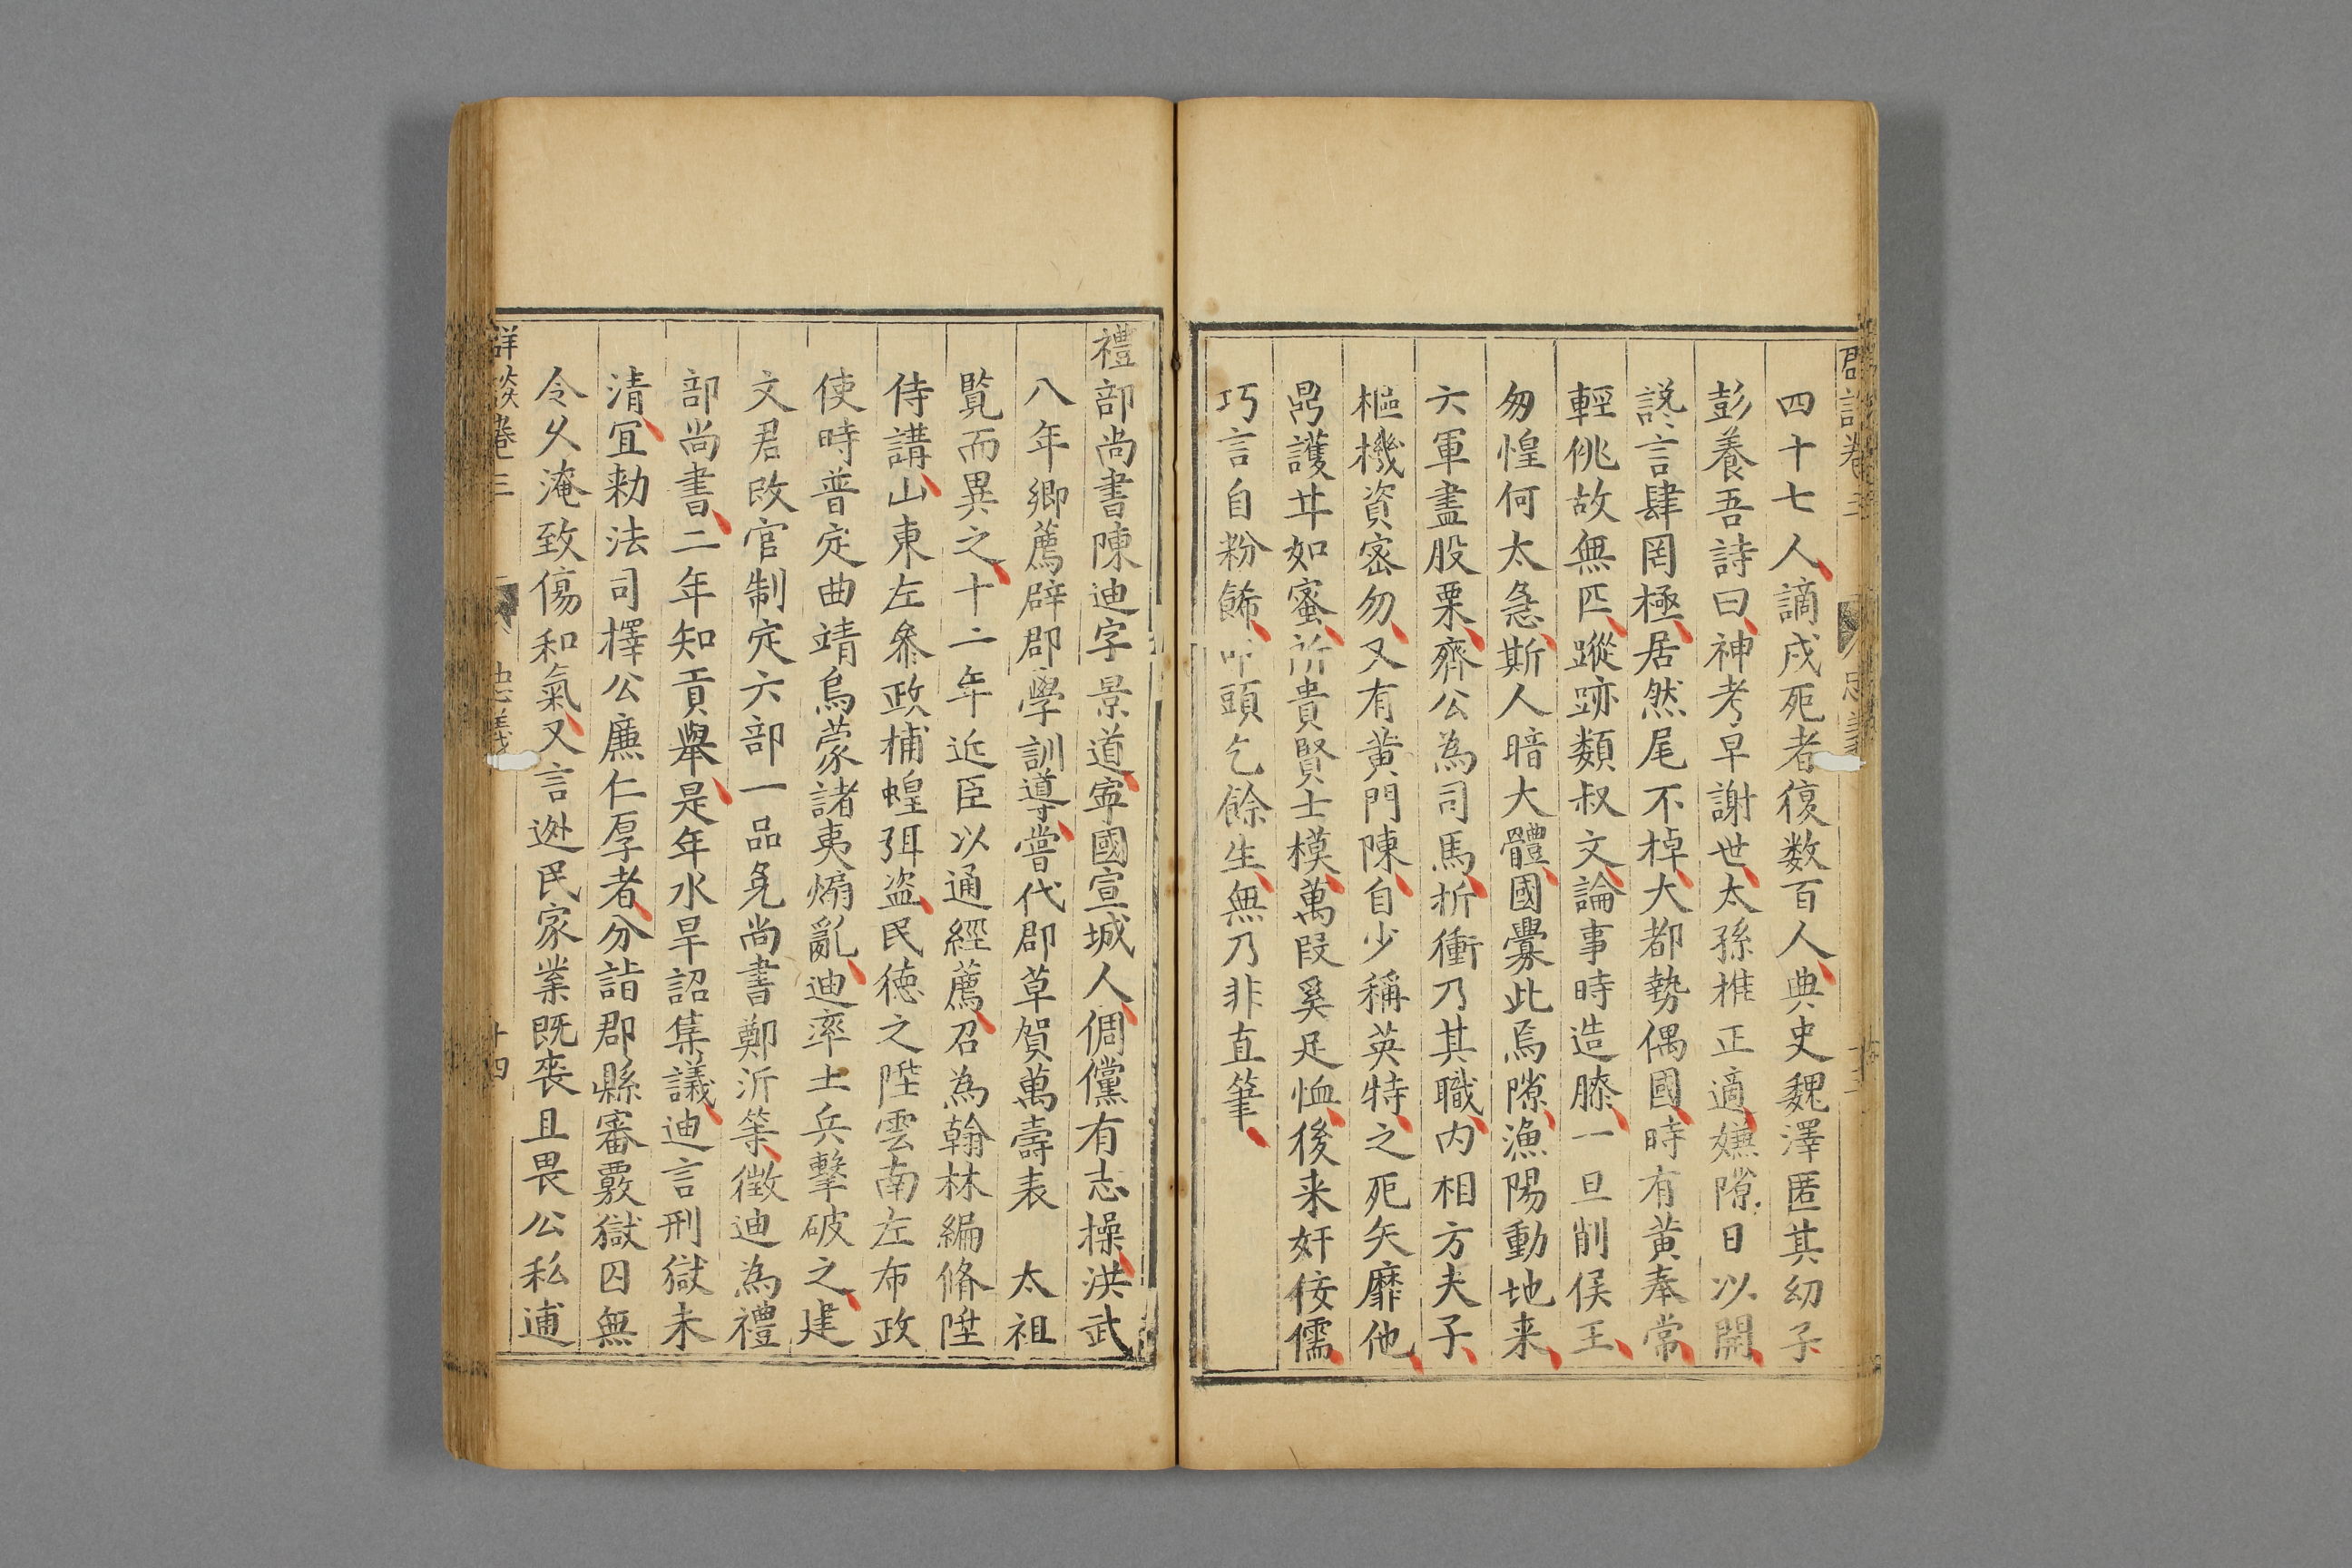 四十七人謫戍死者復数百人典史魏澤匿其幼子
彭養吾詩曰神考早謝世太孫椎正適嫌隙日以開
讒言肆罔極居然尾不棹大都勢偶國時有黄奉常
輕佻故無匹蹤跡類叔文論事時造膝一旦削侯王
匆惶何太急斯人暗大體國釁此焉隙漁陽動地来
六軍盡股栗齊公為司馬折衝乃其職内相方夫子
樞機資宻勿又有黄門陳自少稱英特之死矢靡他
爵護廿如蜜所貴賢士模萬叚奚足恤後来奸佞儒
巧言自粉餙叩頭乞餘生無乃非直筆
禮部尚書陳迪字景道寜國宣城人倜儻有志操洪武
八年鄉薦辟郡學訓導嘗代郡草賀萬壽表　太祖
覧而異之十二年近臣以通經薦召為翰林編脩陞
侍講山東左叅政捕蝗弭盗民徳之陞雲南左布政
使時普定曲靖烏蒙諸夷煽亂迪率土兵擊破之建
文君改官制定六部一品免尚書鄭沂等徵迪為禮
部尚書二年知貢舉是年水旱詔集議迪言刑獄未
清宜勅法司擇公廉仁厚者分詣郡縣審覈獄囚無
令久淹致傷和氣又言迯民家業既喪且畏公私逋
群談巻三
忠義
十四